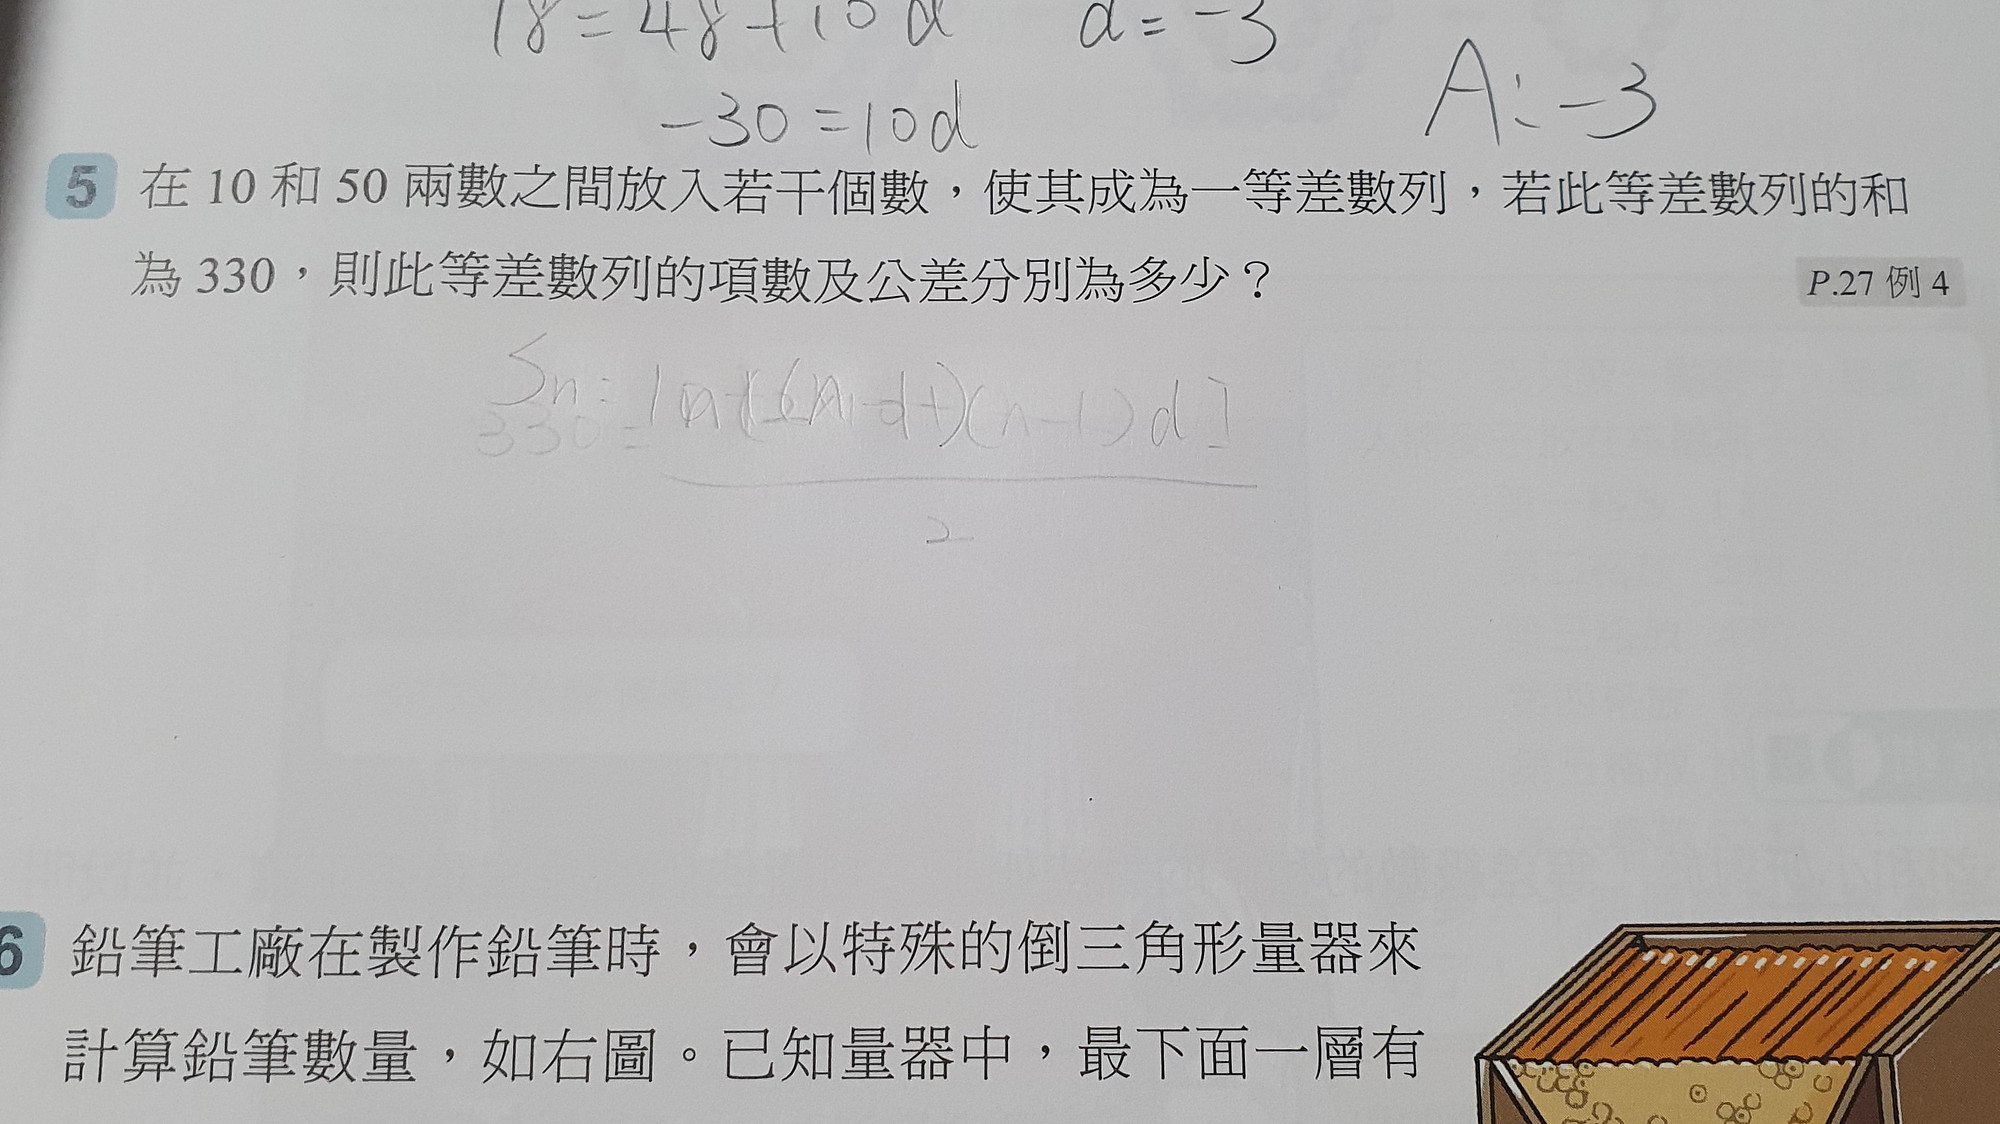 18=48+10d  d=-3
-30=10d  A:-3
5 在 10 和 50 兩數之間放入若干個數，使其成為一等差數列，若此等差數列的和
為 330，則此等差數列的項數及公差分別為多少？ P.27 例 4
Sn=
330=
(n-1)d]
2
6 鉛筆工廠在製作鉛筆時，會以特殊的倒三角形量器來
計算鉛筆數量，如右圖。已知量器中，最下面一層有